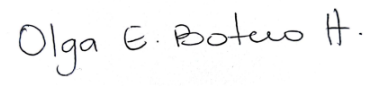 Olga E. Botero H.